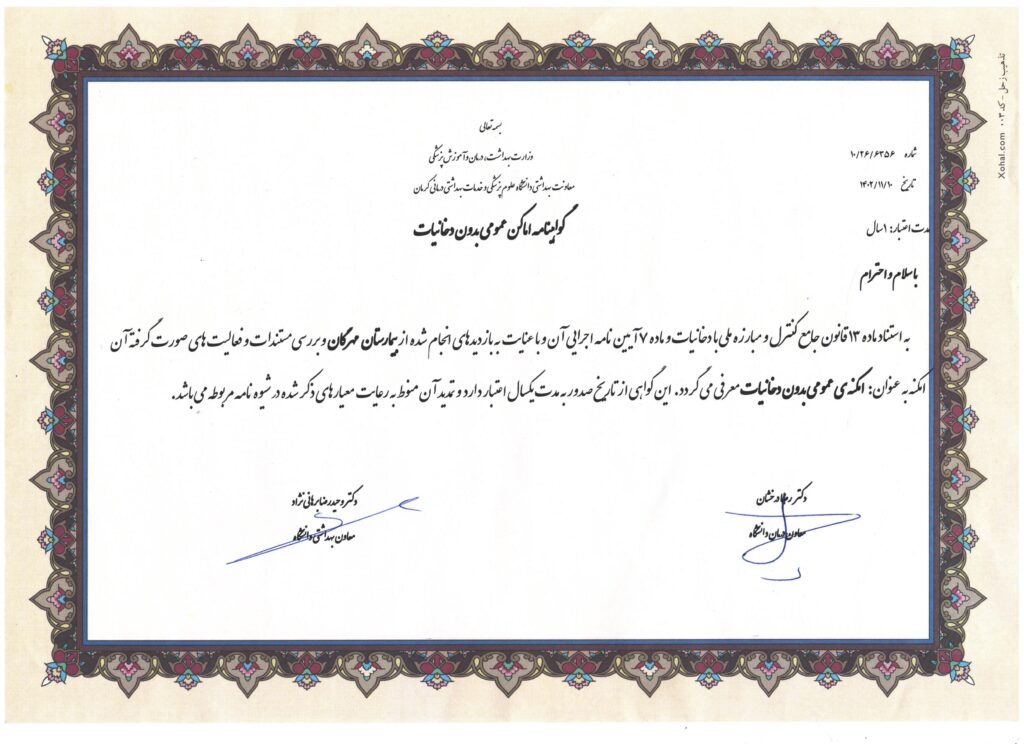 بسمه تعالی
وزارت بهداشت، درمان و آموزش پزشکی
معاونت بهداشتی دانشگاه علوم پزشکی و خدمات بهداشتی درمانی کرمان
گواهینامه اماکن عمومی بدون دخانیات
شماره ۱۰/۲۶/۶۳۵۶
تاریخ ۱۴۰۲/۱۱/۱۰
مدت اعتبار: ۱سال
باسلام و احترام
به استناد ماده ۱۳ قانون جامع کنترل و مبارزه ملی با دخانیات و ماده ۷ آیین نامه اجرایی آن و با عنایت به بازدیدهای انجام شده از بیمارستان مهرگان و بررسی مستندات و فعالیت های صورت گرفته آن
امکنه به عنوان: امکنه ی عمومی بدون دخانیات معرفی می گردد. این گواهی از تاریخ صدور به مدت یکسال اعتبار دارد و تمدید آن منوط به رعایت معیارهای ذکر شده در شیوه نامه مربوطه می باشد.
دکتر رضا درخشان
معاون درمان دانشگاه
دکتر وحیدرضا برهانی نژاد
معاون بهداشتی دانشگاه
تذهیب زحل - کد ۰۰۳
Xohal.com